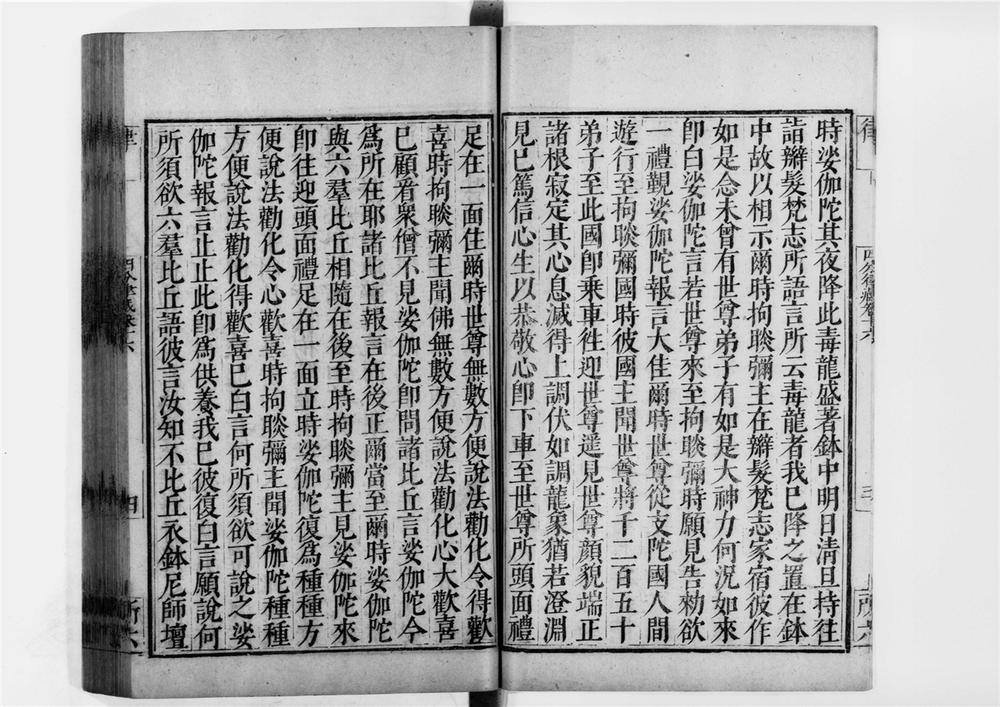 時娑伽陀其夜降此毒龍盛著鉢中明日清旦持往
詣辮髮梵志所語言所云毒龍者我已降之置在鉢
中故以相示爾時拘睒彌主在辮髮梵志家宿彼作
如是念未曾有世尊弟子有如是大神力何況如來
卽白娑伽陀言若世尊來至拘睒彌時願見告勑欲
一禮覲娑伽陀報言大佳爾時世尊從支陀國人間
遊行至拘睒彌國時彼國主聞世尊將千二百五十
弟子至此國卽乗車徃迎世尊遥見世尊顏貌端正
諸根寂定其心息滅得上調伏如調龍象猶若澄淵
見已篤信心生以恭敬心卽下車至世尊所頭面禮
足在一面住爾時世尊無數方便說法勸化令得歡
喜時拘睒彌主聞佛無數方便說法勸化心大歡喜
已顧看衆僧不見娑伽陀卽問諸比丘言娑伽陀今
爲所在耶諸比丘報言在後正爾當至爾時娑伽陀
與六羣比丘相隨在後至時拘睒彌主見娑伽陀來
卽往迎頭面禮足在一面立時娑伽陀復爲種種方
便說法勸化令心歡喜時拘睒彌主聞娑伽陀種種
方便說法勸化得歡喜已白言何所須欲可說之娑
伽陀報言止止此卽爲供養我已彼復白言願說何
所須欲六羣比丘語彼言汝知不比丘衣鉢尼師壇